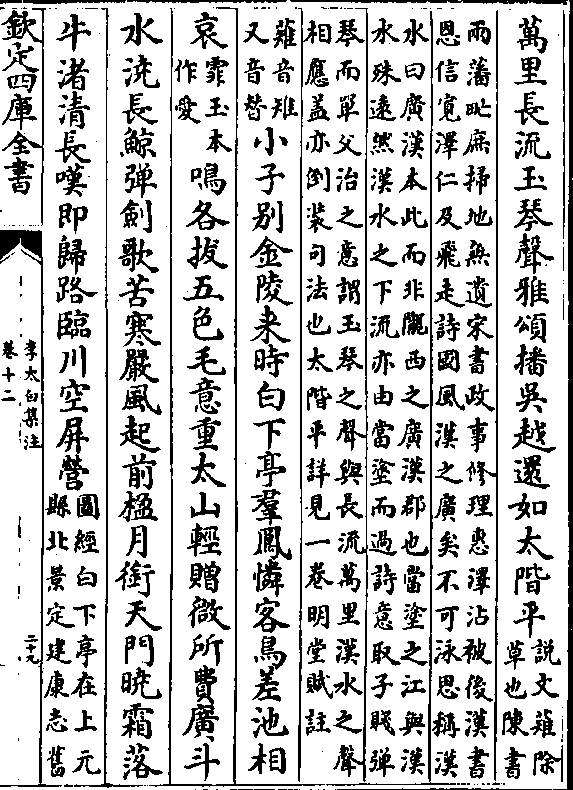 萬里長流玉琴聲雅頌播吳越還如太階平
說文薙除
草也陳書
雨藩毗庶掃地無遺宋書政事修理惠澤沾被後漢書
恩信寛澤仁及飛走詩國風漢之廣矣不可泳思稱漢
水曰廣漢本此而非隴西之廣漢郡也當塗之江與漢
水殊逺然漢水之下流亦由當塗而過詩意取子賤彈
琴而單父治之意謂玉琴之聲與長流萬里漢水之聲
相應盖亦倒装句法也太階平詳見一卷明堂賦註
薙音雉
又音替
小子别金陵来時白下亭羣鳳憐客鳥差池相
哀
霏玉本
作愛
鳴各拔五色毛意重太山輕贈微所費廣斗
水澆長鯨彈劍歌苦寒嚴風起前楹月銜天門曉霜落
牛渚清長嘆即歸路臨川空屏營
圖經白下亭在上元
縣北景定建康志舊
欽定四庫全書
李太白集注
卷十二
二十九